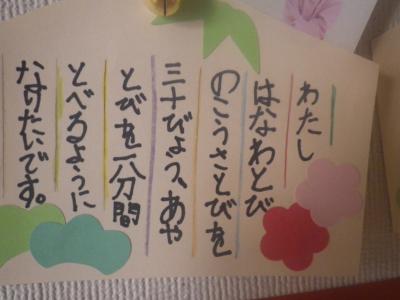 わたし
はなわとび
のこうさとびを
三十びょう、あや
とびを一分間
とべるように
なりたいです。